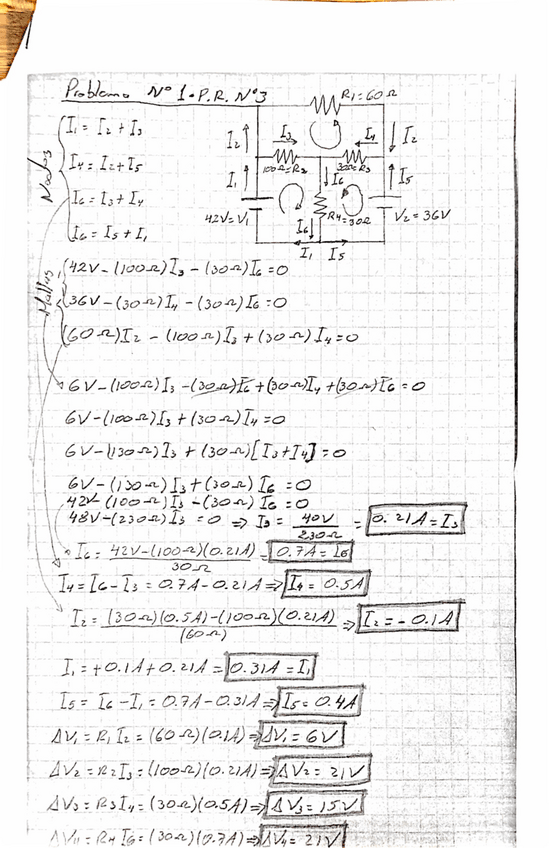 Problema Nº 1 - P.R. Nº3
R1=60Ω
I2
I3
I4
I2
100Ω=R2
30Ω=R3
I1
I6
I5
42V=V1
R4=30Ω
V2=36V
I6
I1 I5
Nodos
I1 = I2 + I3
I4 = I2 + I5
I6 = I3 + I4
I6 = I5 + I1
Mallas
42V-(100Ω)I3-(30Ω)I6=0
36V-(30Ω)I4-(30Ω)I6=0
(60Ω)I2-(100Ω)I3+(30Ω)I4=0
6V-(100Ω)I3-(30Ω)I6+(30Ω)I4+(30Ω)I6=0
6V-(100Ω)I3+(30Ω)I4=0
6V-(130Ω)I3+(30Ω)[I3+I4]=0
6V-(130Ω)I3+(30Ω)I6=0
42V-(100Ω)I3-(30Ω)I6=0
48V-(230Ω)I3=0 ⇒ I3 = 40V/230Ω = 0.21A=I3
I6 = 42V-(100Ω)(0.21A)/30Ω = 0.7A=I6
I4=I6-I3=0.7A-0.21A⇒ I4=0.5A
I2=(30Ω)(0.5A)-(100Ω)(0.21A)/(60Ω) ⇒ I2=-0.1A
I1=+0.1A+0.21A=0.31A=I1
I5=I6-I1=0.7A-0.31A⇒I5=0.4A
ΔV1=R1I2=(60Ω)(0.1A)⇒ΔV1=6V
ΔV2=R2I3=(100Ω)(0.21A)⇒ΔV2=21V
ΔV3=R3I4=(30Ω)(0.5A)⇒ΔV3=15V
ΔV4=R4I6=(30Ω)(0.7A)⇒ΔV4=21V